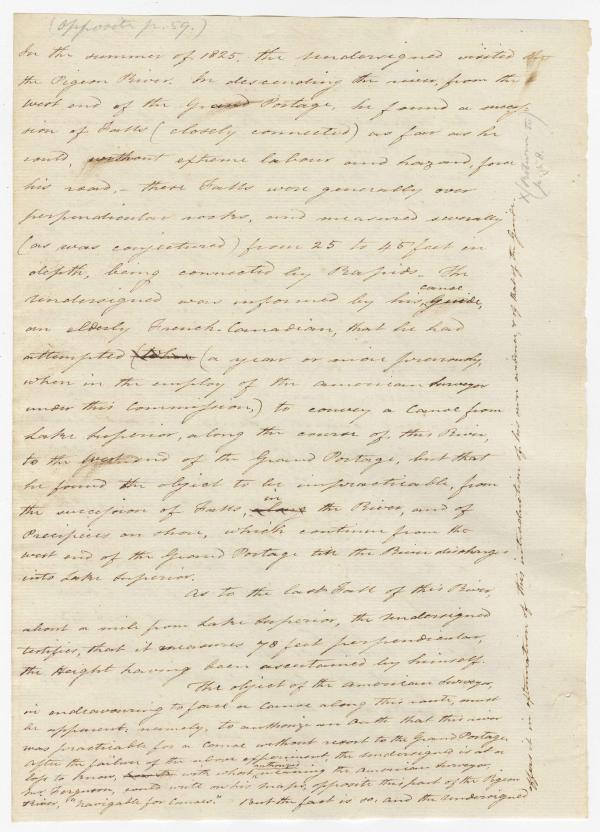 (opposite p. 59.)
In the summer of 1825, the undersigned visited
the Pigeon River. In descending the river from the
west end of the Grand Portage, he found a succes-
sion of Falls (closely connected) as far as he
could, without extreme labour and hazard, force
his road, - these Falls were generally over
perpendicular rocks, and measured severally
(as was conjectured) from 25 to 45 feet in
depth, being connected by Rapids. The
canoe
Undersigned was informed by his Guide,
an elderly French-Canadian, that he had
attempted (a year or more previously,
when in the employ of the american Surveyor
under this Commission,) to convey a Canoe from
Lake Superior, along the course of this River,
to the West end of the Grand Portage, but that
he found the object to be impracticable, from
in
the succession of Falls, the River, and of
Precipices on shore, which continue from the
west end of the Grand Portage till the River discharges
into Lake Superior.
As to the last Fall of this River
about a mile from Lake Superior, the undersigned
testifies, that it measures 78 feet perpendicular,
the Height having been ascertained by himself.
The object of the american Surveyor,
in endeavouring to force a Canoe along this route, must
be apparent, namely, to authorize an Oath that this river
was practicable for a Canoe without resort to the Grand Portage.
After the failure of the above experiment, the undersigned is at a
authorized
loss to know, with what meaning the american Surveyor,
Mr. Ferguson, could write on his maps, opposite this part of the Pigeon
River, "navigable for Canoes." But the fact is so: and the undersigned
offers it in of this introduction of his own evidence, & of that of the Guide.